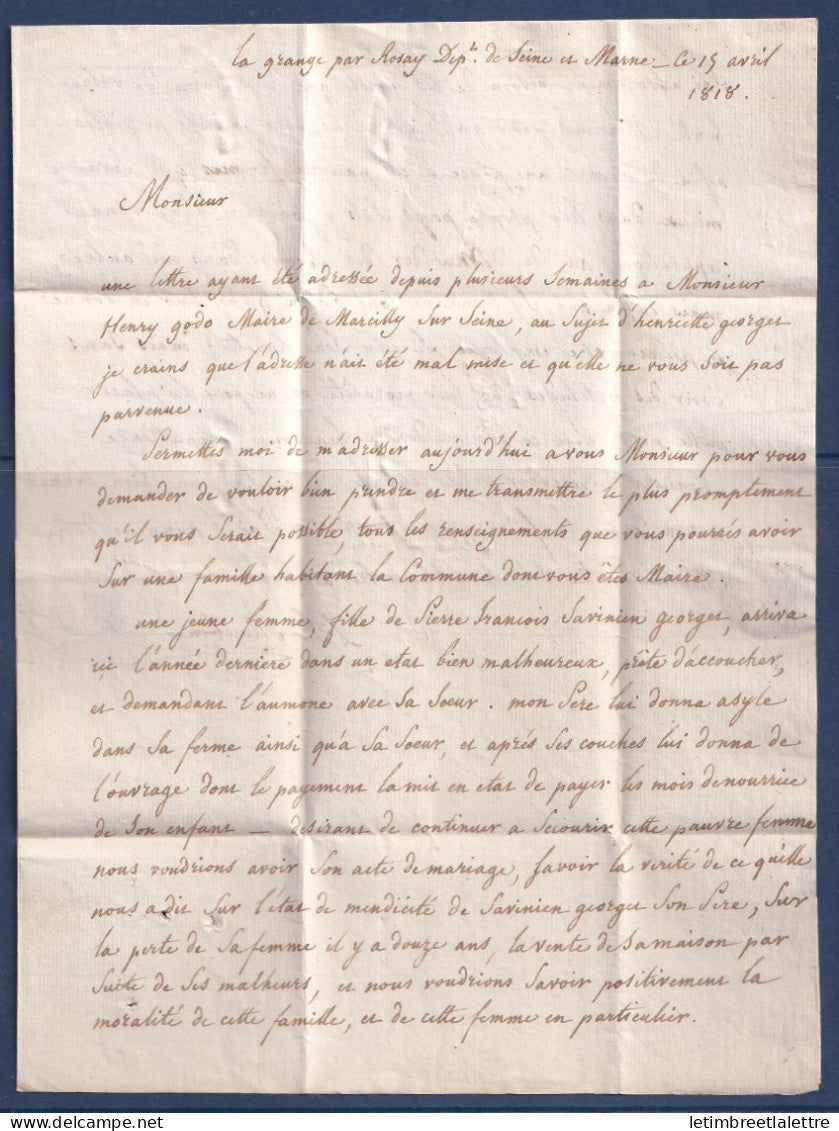 la grange par Rosay Dep.t de Seine et Marne - Ce 15 avril
1818.
Monsieur
une lettre ayant été adressée depuis plusieurs Semaines a Monsieur
Henry godo Maire de Marcilly Sur Seine, au Sujet d'henriette georget
je crains que l'adresse n'ait été mal mise et qu'elle ne vous Soit pas
parvenue.
Permettés moi de m'adresser aujourd'hui a vous Monsieur pour vous
demander de vouloir bien prendre et me transmettre le plus promptement
qu'il vous Serait possible, tous les renseignements que vous pourrés avoir
Sur une famille habitant la Commune dont vous êtes Maire.
une jeune femme, fille de Pierre françois Savinien georget, arriva
ici l'année derniere dans un etat bien malheureux, prête d'accoucher,
et demandant l'aumone avec Sa Soeur. mon Pere lui donna asyle
dans Sa ferme ainsi qu'a Sa Soeur, et aprés Ses couches lui donna de
l'ouvrage dont le payement la mit en etat de payer les mois de nourrice
de Son enfant - desirant de continuer a Secourir cette pauvre femme
nous voudrions avoir Son acte de mariage, Savoir la verité de ce qu'elle
nous a dit Sur l'état de mendicité de Savinien georget Son Pere, Sur
la perte de Sa femme il y a douze ans, la vente de Sa maison par
Suite de Ses malheurs, et nous voudrions Savoir positivement la
moralité de cette famille, et de cette femme en particulier.
letimbreetlalettre